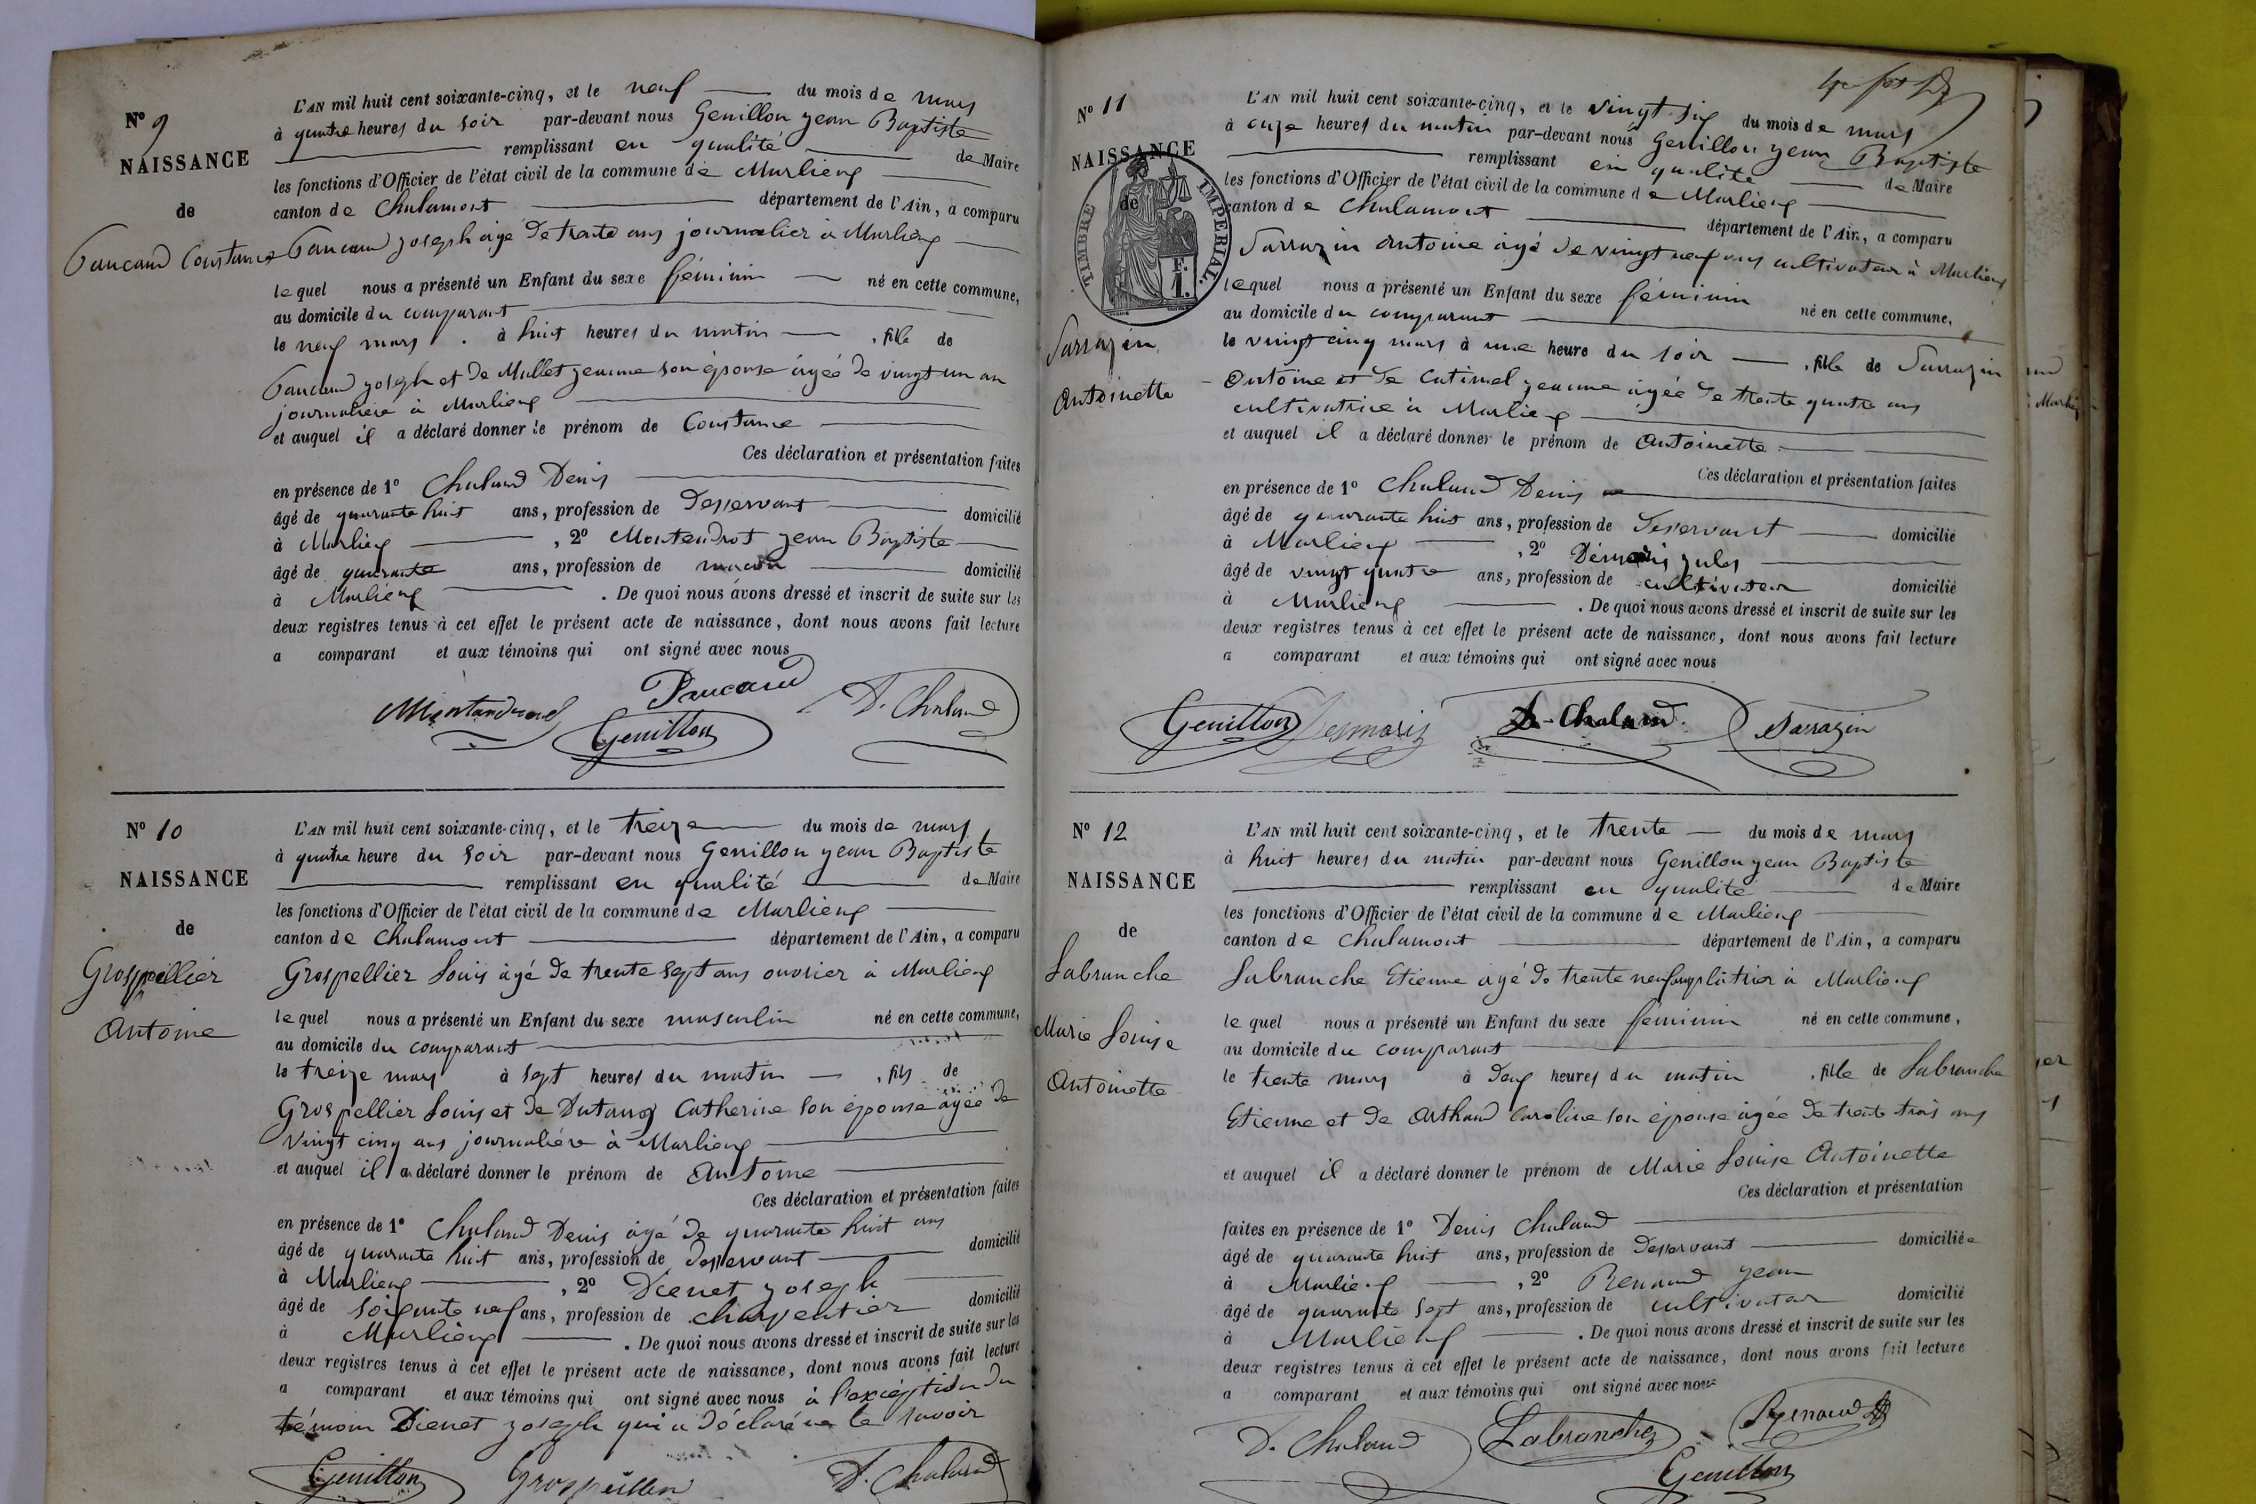 N° 9
NAISSANCE
de
Paucaud Constance
L'AN mil huit cent soixante-cinq, et le neuf du mois de mars
à quatre heures du soir par-devant nous Genillon jean Baptiste
remplissant en qualité de Maire
les fonctions d'Officier de l'état civil de la commune de Marlieux
canton de Chalamont département de l'Ain, a comparu
Paucaud joseph âgé de trente ans journalier à Marlieux
lequel nous a présenté un Enfant du sexe féminin né en cette commune,
au domicile du comparant
le neuf mars à huit heures du matin, fille de
Paucaud joseph et de Mallet jeanne son épouse âgée de vingt un an
journalière à Marlieux
et auquel il a déclaré donner le prénom de Constance
Ces déclaration et présentation faites
en présence de 1° Chaland Denis
âgé de quarante huit ans, profession de Desservant domicilié
à Marlieux, 2° Montendrot jean Baptiste
âgé de quarante ans, profession de maçon domicilié
à Marlieux. De quoi nous avons dressé et inscrit de suite sur les
deux registres tenus à cet effet le présent acte de naissance, dont nous avons fait lecture
a comparant et aux témoins qui ont signé avec nous
Paucaud
D. Chaland
Genillon
N° 10
NAISSANCE
de
Grospellier
Antoine
L'AN mil huit cent soixante-cinq, et le treize du mois de mars
à quatre heure du soir par-devant nous Genillon jean Baptiste
remplissant en qualité de Maire
les fonctions d'Officier de l'état civil de la commune de Marlieux
canton de Chalamont département de l'Ain, a comparu
Grospellier Louis âgé de trente sept ans ouvrier à Marlieux
lequel nous a présenté un Enfant du sexe masculin né en cette commune,
au domicile du comparant
le treize mars à sept heures du matin, fils de
Grospellier Louis et de Dutang Catherine son épouse âgée de
vingt cinq ans journalière à Marlieux
et auquel il a déclaré donner le prénom de Antoine
Ces déclaration et présentation faites
en présence de 1° Chaland Denis âgé de quarante huit ans
âgé de quarante huit ans, profession de desservant domicilié
à Marlieux, 2° Dienet joseph
âgé de soixante neuf ans, profession de charpentier domicilié
à Marlieux. De quoi nous avons dressé et inscrit de suite sur les
deux registres tenus à cet effet le présent acte de naissance, dont nous avons fait lecture
a comparant et aux témoins qui ont signé avec nous à l'exception du
témoin Dienet joseph qui a déclaré ne le savoir
Genillon Grospellier D. Chaland
N° 11
NAISSANCE
de
TIMBRE IMPERIAL
F.
1.
Sarrazin
Antoinette
L'AN mil huit cent soixante-cinq, et le vingt six du mois de mars
à onze heures du matin par-devant nous Genillon jean Baptiste
remplissant en qualité de Maire
les fonctions d'Officier de l'état civil de la commune de Marlieux
canton de Chalamont département de l'Ain, a comparu
Sarrazin Antoine âgé de vingt neuf ans cultivateur à Marlieux
lequel nous a présenté un Enfant du sexe féminin né en cette commune,
au domicile du comparant
le vingt cinq mars à une heure du soir, fille de Sarrazin
Antoine et de Catinel jeanne âgée de trente quatre ans
cultivatrice à Marlieux
et auquel il a déclaré donner le prénom de Antoinette
Ces déclaration et présentation faites
en présence de 1° Chaland Denis
âgé de quarante huit ans, profession de Desservant domicilié
à Marlieux, 2° Démaris jules
âgé de vingt quatre ans, profession de cultivateur domicilié
à Marlieux. De quoi nous avons dressé et inscrit de suite sur les
deux registres tenus à cet effet le présent acte de naissance, dont nous avons fait lecture
a comparant et aux témoins qui ont signé avec nous
Genillon Desmaris D. Chaland Sarrazin
N° 12
NAISSANCE
de
Labranche
Marie Louise
Antoinette
L'AN mil huit cent soixante-cinq, et le trente du mois de mars
à huit heures du matin par-devant nous Genillon jean Baptiste
remplissant en qualité de Maire
les fonctions d'Officier de l'état civil de la commune de Marlieux
canton de Chalamont département de l'Ain, a comparu
Labranche Etienne âgé de trente neuf ans plâtrier à Marlieux
lequel nous a présenté un Enfant du sexe féminin né en cette commune,
au domicile du comparant
le trente mars à deux heures du matin, fille de Labranche
Etienne et de Arthaud Caroline son épouse âgée de trente trois ans
et auquel il a déclaré donner le prénom de Marie Louise Antoinette
Ces déclaration et présentation
faites en présence de 1° Denis Chaland
âgé de quarante huit ans, profession de Desservant domicilié
à Marlieux, 2° Renaud jean
âgé de quarante sept ans, profession de cultivateur domicilié
à Marlieux. De quoi nous avons dressé et inscrit de suite sur les
deux registres tenus à cet effet le présent acte de naissance, dont nous avons fait lecture
a comparant et aux témoins qui ont signé avec nous
D. Chaland Labranche Renaud
Genillon